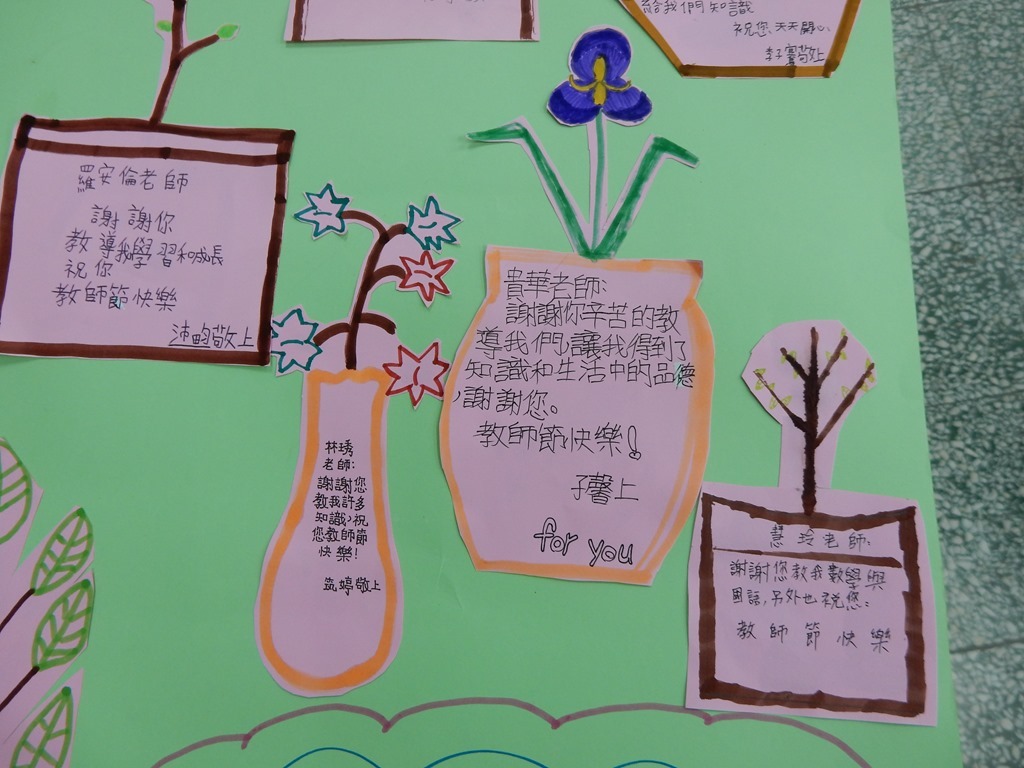 給我們知識
祝您天天開心
敬上
羅安倫老師
謝謝你
教導我學習和成長
祝你
教師節快樂
沛畇敬上
貴華老師:
謝謝你辛苦的教
導我們,讓我得到了
知識和生活中的品德
,謝謝您。
教師節快樂!
子馨上
for you
林琇
老師:
謝謝您
教我許多
知識,祝
您教師節
快樂!
筑婷敬上
慧玲老師:
謝謝您教我數學與
國語,另外也祝您:
教師節快樂